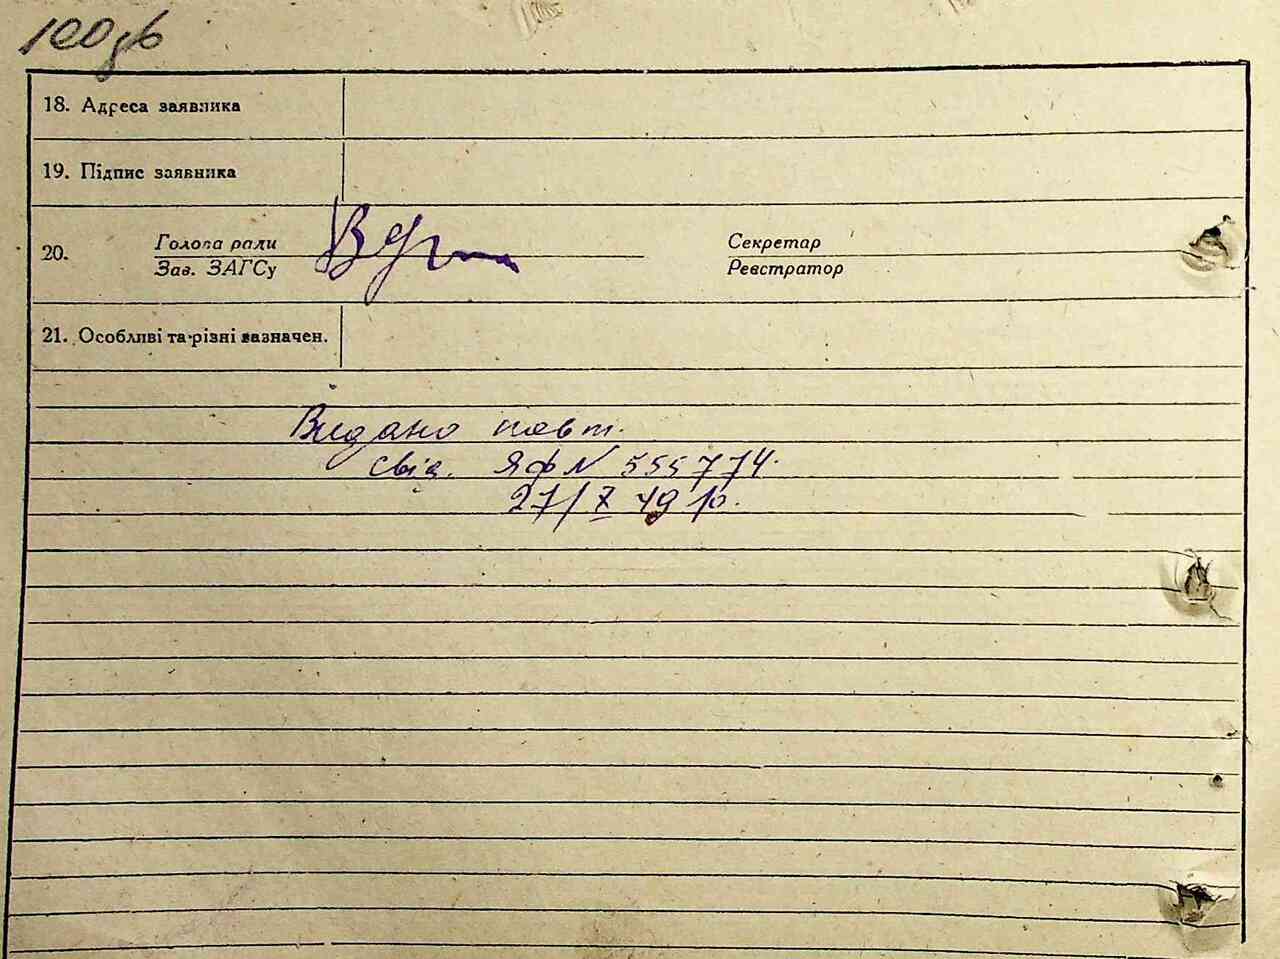 100 зв
18. Адреса заявника
19. Підпис заявника
20. Голова ради Секретар
Зав. ЗАГСу Реєстратор
21. Особливі та різні вазначен.
Видано повт.
свід. ЯФ N 555774.
27/X 49 р.